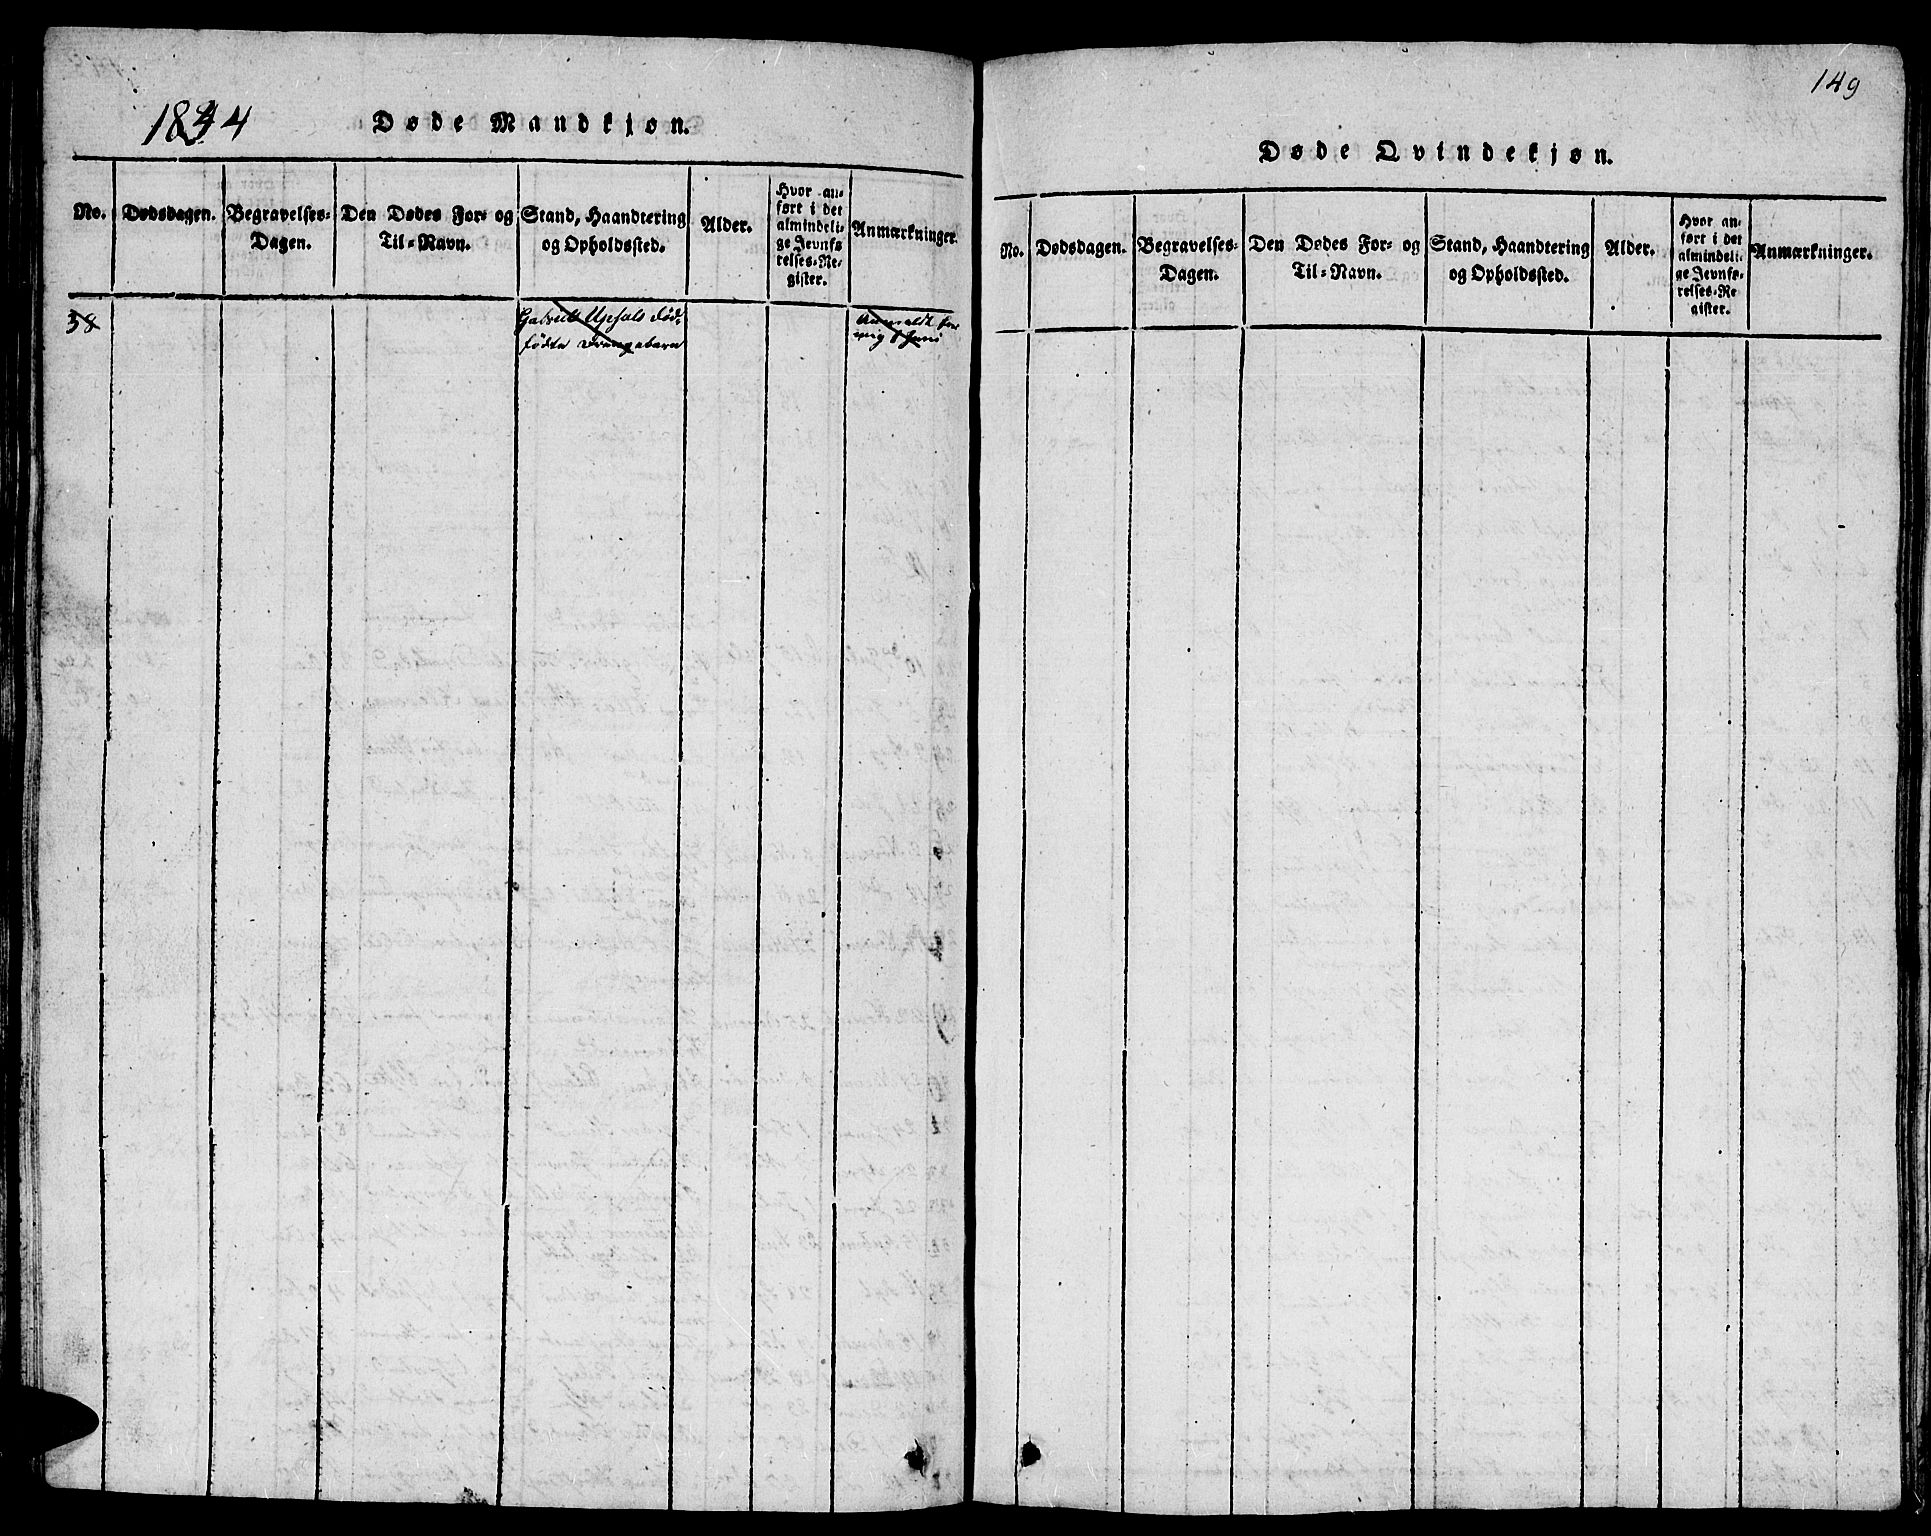 1844
Døde Mandkjøn.
No.
Dødsdagen.
Begravelses-
Dagen.
Den Dødes For- og
Til-Navn.
Stand, Haandtering
og Opholdssted.
Alder.
Hvor an-
ført i det
almindeli-
ge Jevnfø-
relses-Re-
gister.
Anmærkninger.
38
Gabriel Upsals død-
fødte Drengebarn
Anmeldt for
mig
149
Døde Qvindekjøn.
No.
Dødsdagen.
Begravelses-
Dagen.
Den Dødes For- og
Til-Navn.
Stand, Haandtering
og Opholdssted.
Alder.
Hvor an-
ført i det
almindeli-
ge Jevnfø-
relses-Re-
gister.
Anmærkninger.